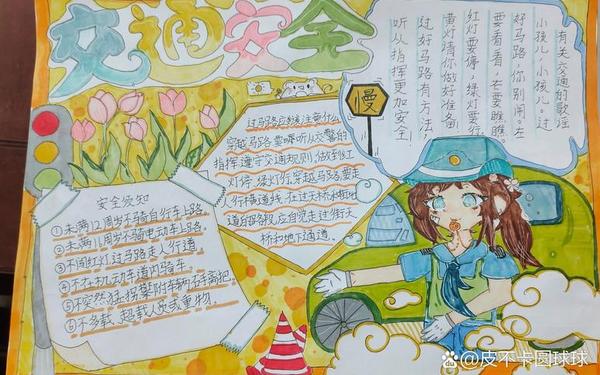 交通安全
有关交通的歌谣
小孩儿,小孩儿,过
好马路,你别闹。左
要看看,右要瞧瞧。
红灯要停,绿灯要行
黄灯请你做好准备
过好马路有方法,
听从指挥更加安全
慢
过马路应该注意什么
穿越马路,要听从交警的
指挥遵守交通规则,做到红
灯停,绿灯行,穿越马路,要走
人行横道线,在过天桥
道的路段,应自觉走过街天
桥和地下通道。
安全须知
①未满12周岁不骑自行车上路。
②未满16周岁不骑电动车上路。
③不闯红灯过马路走人行道。
④不在机动车道骑车。
⑤不突然猛拐攀附车辆手离把。
⑥不多载、超载人员或重物。
@皮不卡圆球球